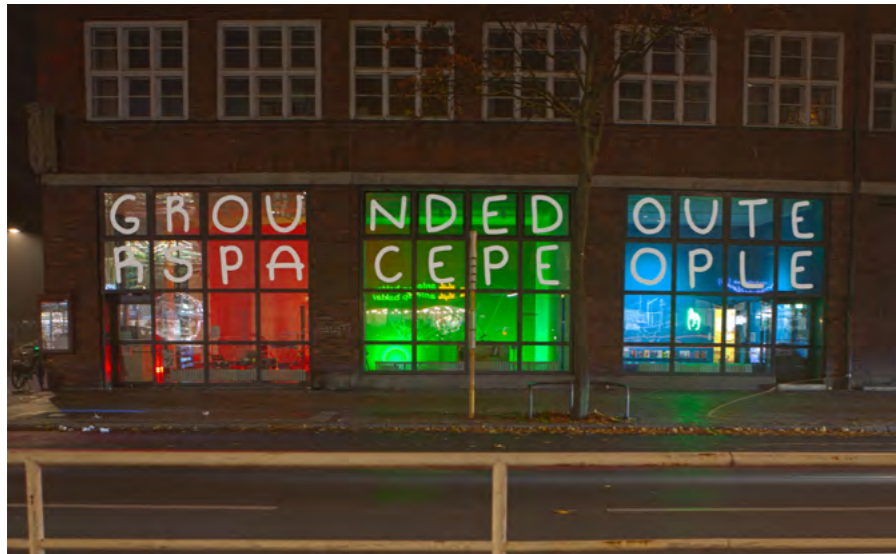 GROUNDED OUTE
RSPACEPEOPLE